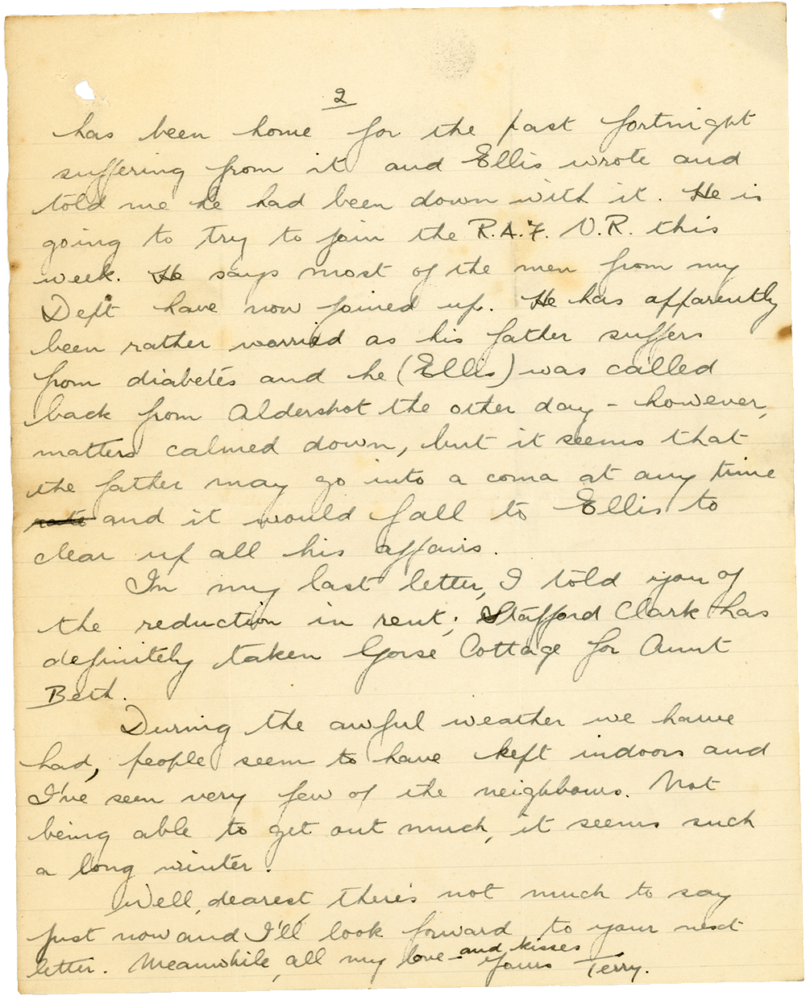 2
has been home for the past fortnight
suffering from it and Ellis wrote and
told me he had been down with it. He is
going to try to join the R.A.F. V.R. this
week. He says most of the men from my
Dept have now joined up. He has apparently
been rather worried as his father suffers
from diabetes and he (Ellis) was called
back from Aldershot the other day - however,
matters calmed down, but it seems that
the father may go into a coma at any time
and it would fall to Ellis to
clear up all his affairs.
In my last letter, I told you of
the reduction in rent; Stafford Clark has
definitely taken Gorse Cottage for Aunt
Beth.
During the awful weather we have
had, people seem to have kept indoors and
I've seen very few of the neighbours. Not
being able to get out much, it seems such
a long winter.
Well, dearest, there's not much to say
just now and I'll look forward to your next
letter. Meanwhile, all my love and kisses
Yours Terry.